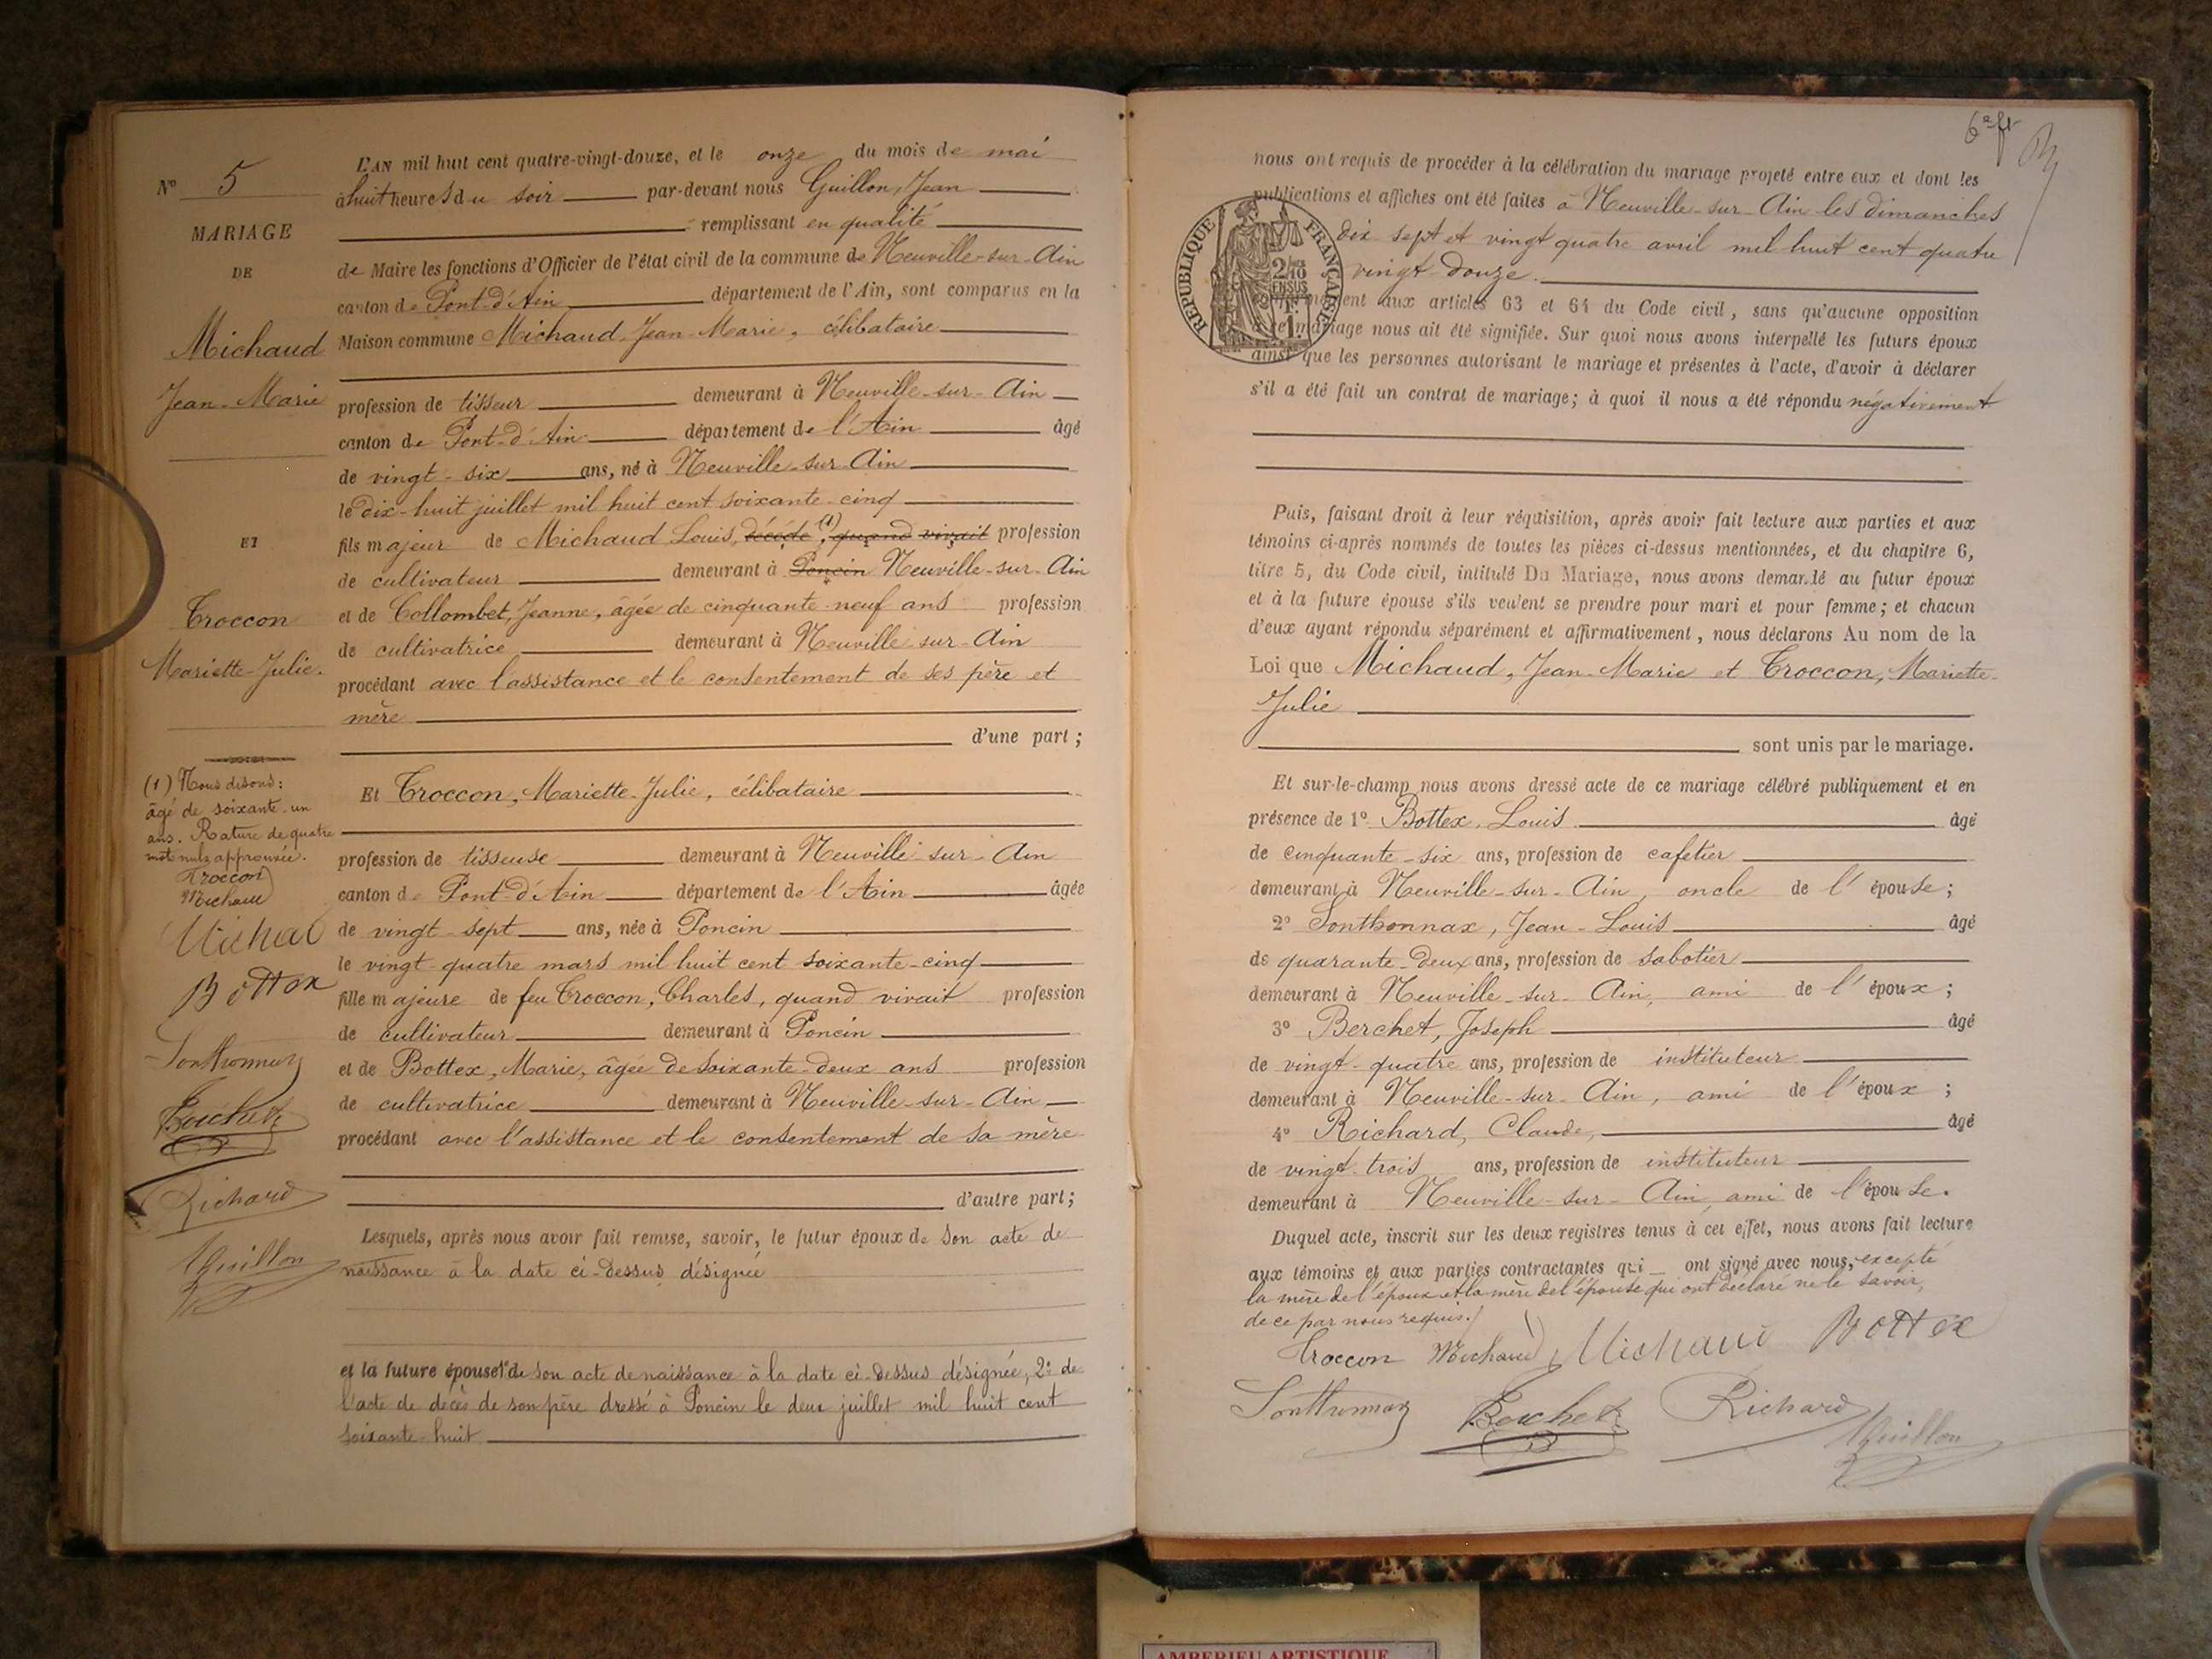 N° 5
MARIAGE
DE
Michaud
Jean-Marie
ET
Troccon
Mariette-Julie.
(1) Nous disons:
âgé de soixante-un
ans. Rature de quatre
mots nuls approuvée.
Troccon
Michaud
Michaud
Bottex
Sonthonnax
Berchet
Richard
Guillon
L'AN mil huit cent quatre-vingt-douze, et le onze du mois de mai
à huit heures du soir par-devant nous Guillon, Jean
remplissant en qualité
de Maire les fonctions d'Officier de l'état civil de la commune de Neuville-sur-Ain
canton de Pont-d'Ain département de l'Ain, sont comparus en la
Maison commune Michaud, Jean-Marie, célibataire
profession de tisseur demeurant à Neuville-sur-Ain
canton de Pont-d'Ain département de l'Ain âgé
de vingt-six ans, né à Neuville-sur-Ain
le dix-huit juillet mil huit cent soixante-cinq
fils majeur de Michaud Louis, décédé (1), quand vivait profession
de cultivateur demeurant à Poncin Neuville-sur-Ain
et de Collombet, Jeanne, âgée de cinquante-neuf ans profession
de cultivatrice demeurant à Neuville-sur-Ain
procédant avec l'assistance et le consentement de ses père et
mère
d'une part;
Et Troccon, Mariette-Julie, célibataire
profession de tisseuse demeurant à Neuville-sur-Ain
canton de Pont-d'Ain département de l'Ain âgée
de vingt-sept ans, née à Poncin
le vingt-quatre mars mil huit cent soixante-cinq
fille majeure de feu Troccon, Charles, quand vivait profession
de cultivateur demeurant à Poncin
et de Bottex, Marie, âgée de soixante-deux ans profession
de cultivatrice demeurant à Neuville-sur-Ain
procédant avec l'assistance et le consentement de sa mère
d'autre part;
Lesquels, après nous avoir fait remise, savoir, le futur époux de son acte de
naissance à la date ci-dessus désignée
et la future épouse 1° de son acte de naissance à la date ci-dessus désignée, 2° de
l'acte de décès de son père dressé à Poncin le deux juillet mil huit cent
soixante-huit
6e ft
nous ont requis de procéder à la célébration du mariage projeté entre eux et dont les
publications et affiches ont été faites à Neuville-sur-Ain les dimanches
dix-sept et vingt quatre avril mil huit cent quatre
vingt-douze
REPUBLIQUE FRANÇAISE
2/10 EN SUS
1F.
aux articles 63 et 64 du Code civil, sans qu'aucune opposition
mariage nous ait été signifiée. Sur quoi nous avons interpellé les futurs époux
ainsi que les personnes autorisant le mariage et présentes à l'acte, d'avoir à déclarer
s'il a été fait un contrat de mariage; à quoi il nous a été répondu négativement
Puis, faisant droit à leur réquisition, après avoir fait lecture aux parties et aux
témoins ci-après nommés de toutes les pièces ci-dessus mentionnées, et du chapitre 6,
titre 5, du Code civil, intitulé Du Mariage, nous avons demandé au futur époux
et à la future épouse s'ils veulent se prendre pour mari et pour femme; et chacun
d'eux ayant répondu séparément et affirmativement, nous déclarons Au nom de la
Loi que Michaud, Jean-Marie et Troccon, Mariette-
Julie
sont unis par le mariage.
Et sur-le-champ nous avons dressé acte de ce mariage célébré publiquement et en
présence de 1° Bottex, Louis âgé
de cinquante-six ans, profession de cafetier
demeurant à Neuville-sur-Ain, oncle de l'épouse;
2° Sonthonnax, Jean-Louis âgé
de quarante-deux ans, profession de sabotier
demeurant à Neuville-sur-Ain, ami de l'époux;
3° Berchet, Joseph âgé
de vingt-quatre ans, profession de instituteur
demeurant à Neuville-sur-Ain, ami de l'époux;
4° Richard, Claude, âgé
de vingt-trois ans, profession de instituteur
demeurant à Neuville-sur-Ain, ami de l'épouse.
Duquel acte, inscrit sur les deux registres tenus à cet effet, nous avons fait lecture
aux témoins et aux parties contractantes qui ont signé avec nous, excepté
la mère de l'époux et la mère de l'épouse qui ont déclaré ne le savoir,
de ce par nous requis.
Troccon Michaud Michaud Bottex
Sonthonnax Berchet Richard
Guillon
AMBERIEU ARTISTIQUE